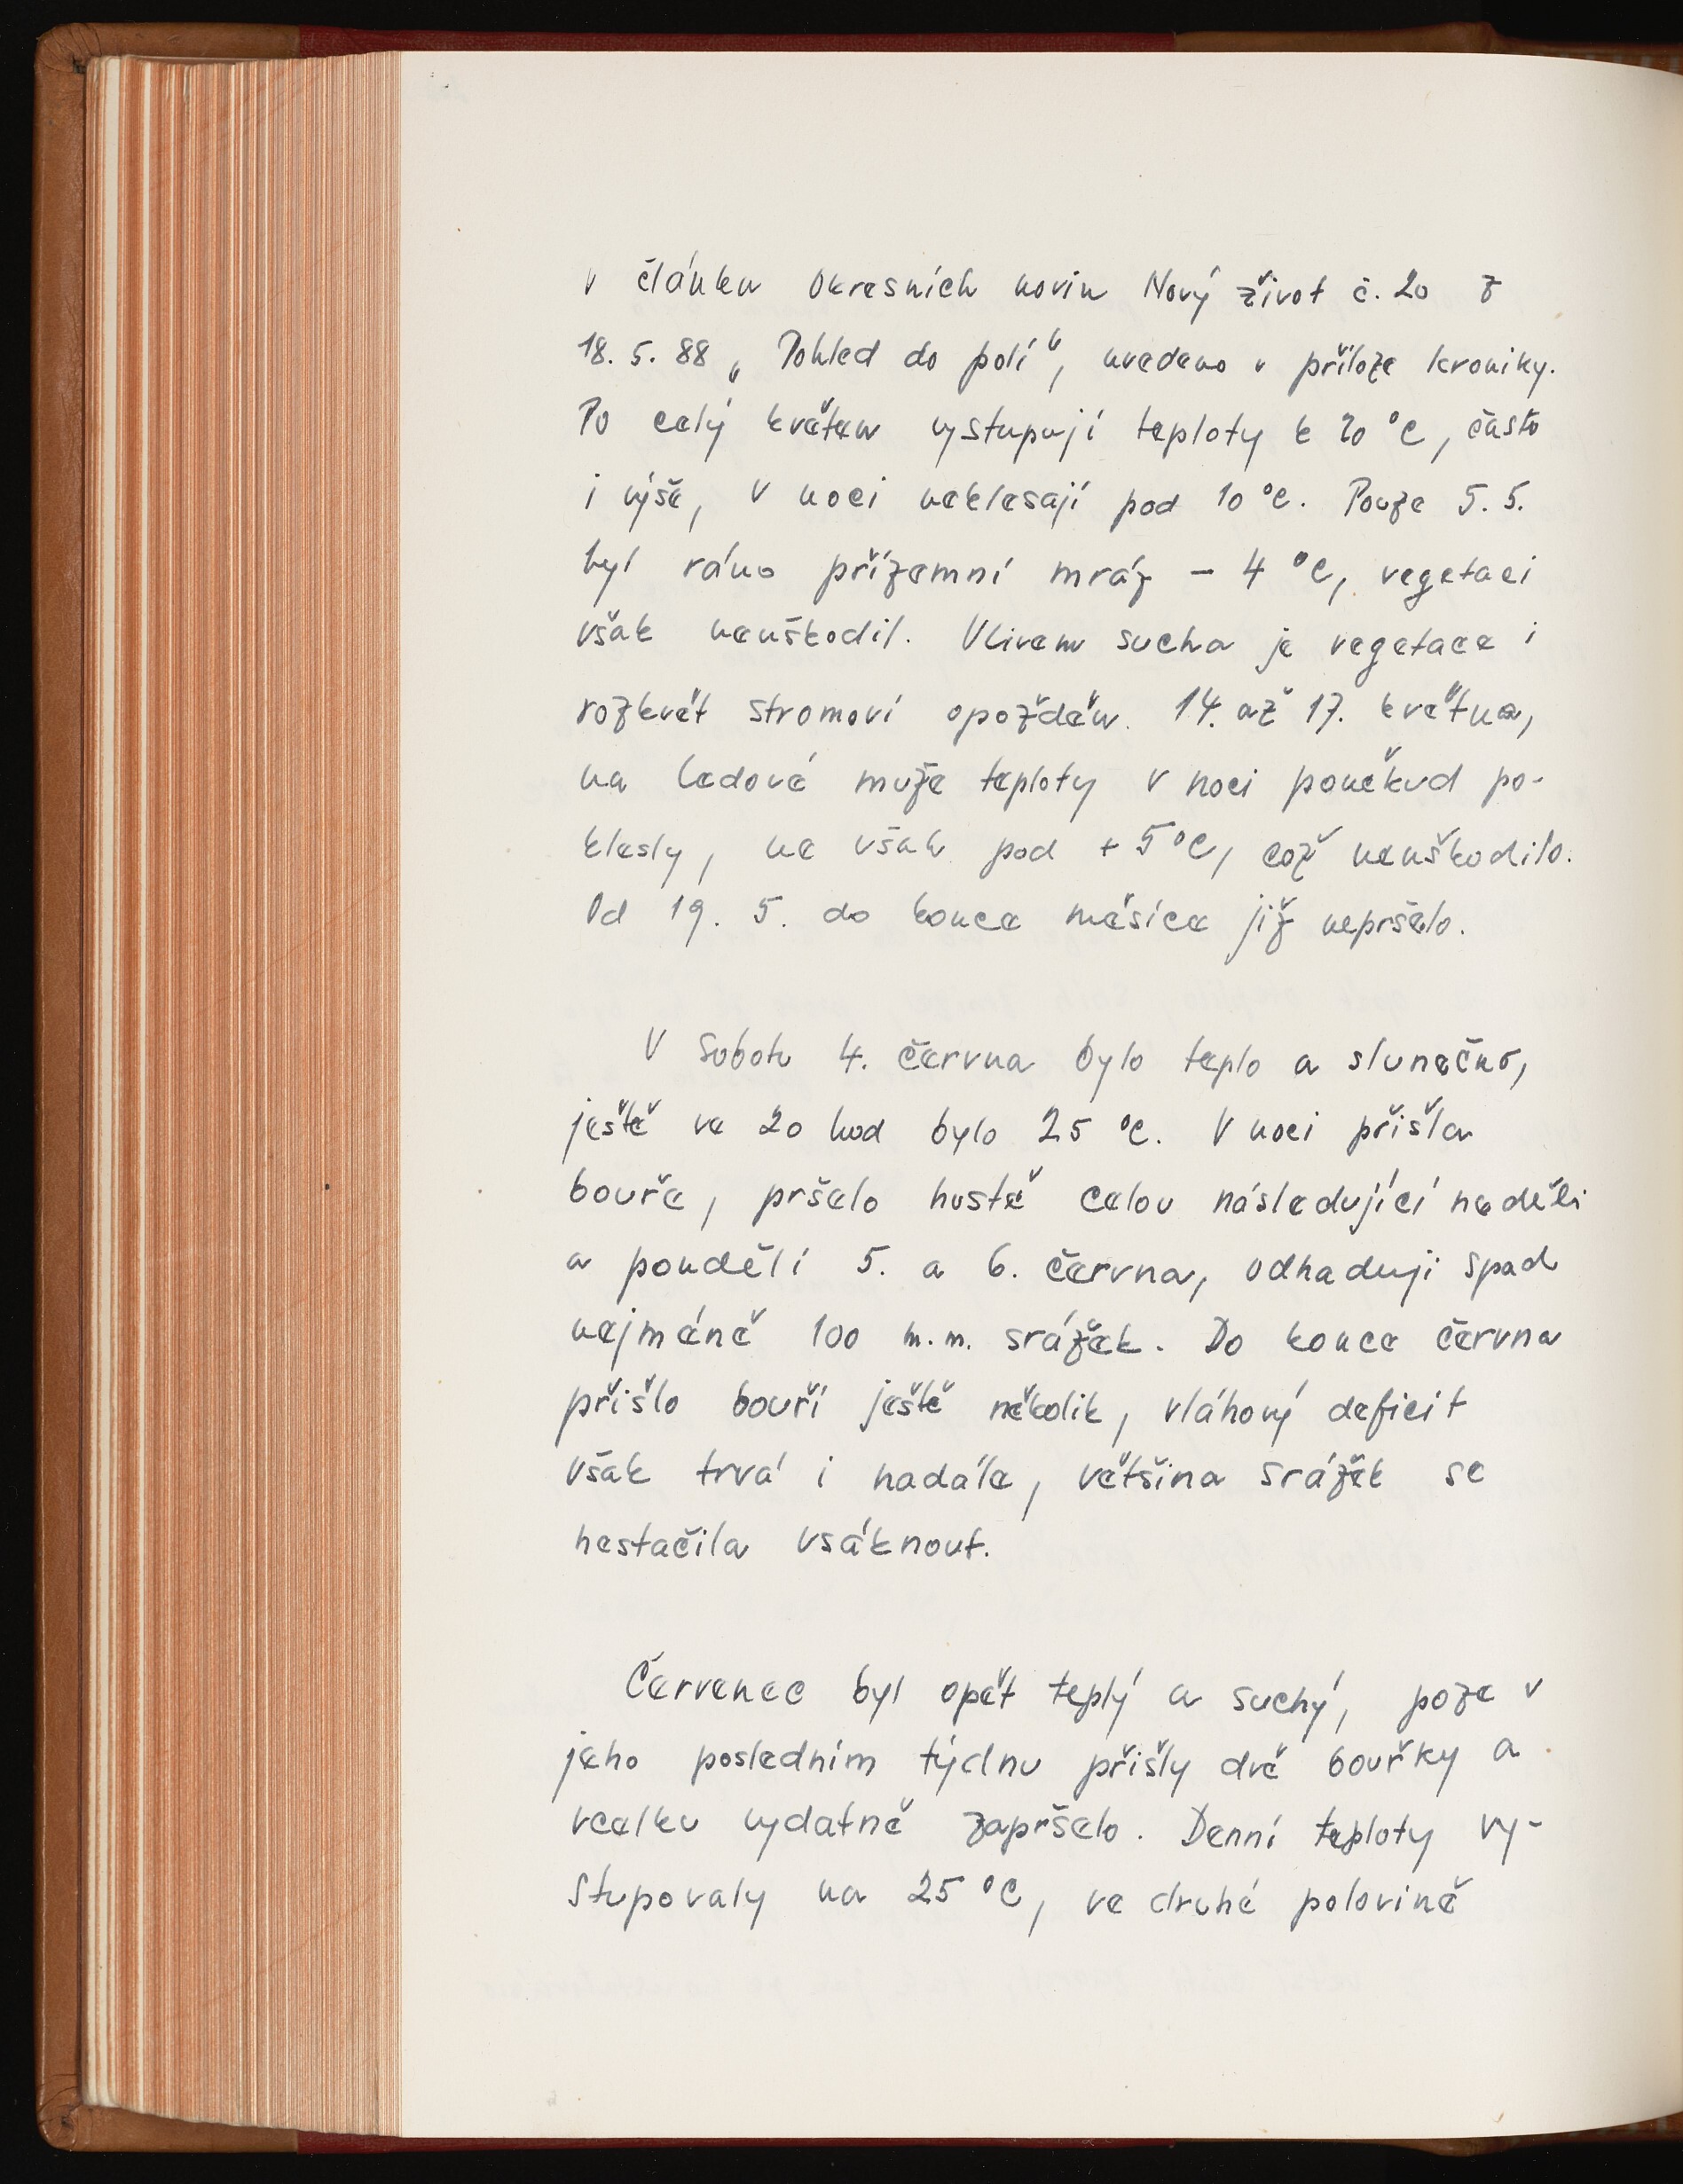 v článku Okresních novin Nový život č. 20 z
18. 5. 88 „Pohled do polí“, uvedeno v příloze kroniky.
Po celý květen vystupují teploty k 20 °C, často
i výše, v noci neklesají pod 10 °C. Pouze 5. 5.
byl ráno přízemní mráz – 4 °C, vegetaci
však neuškodil. Vlivem sucha je vegetace i
rozkvět stromoví opožděn. 14. až 17. května,
na ledové muže teploty v noci poněkud po-
klesly, ne však pod + 5 °C, což neuškodilo.
Od 19. 5. do konce měsíce již nepršelo.
V sobotu 4. června bylo teplo a slunečno,
ještě ve 20 hod bylo 25 °C. V noci přišla
bouře, pršelo hustě celou následující neděli
a pondělí 5. a 6. června, odhaduji spad
nejméně 100 m.m. srážek. Do konce června
přišlo bouří ještě několik, vláhový deficit
však trvá i nadále, většina srážek se
nestačila vsáknout.
Červenec byl opět teplý a suchý, poze v
jeho posledním týdnu přišly dvě bouřky a
vcelku vydatně zapršelo. Denní teploty vy-
stupovaly na 25 °C, ve druhé polovině